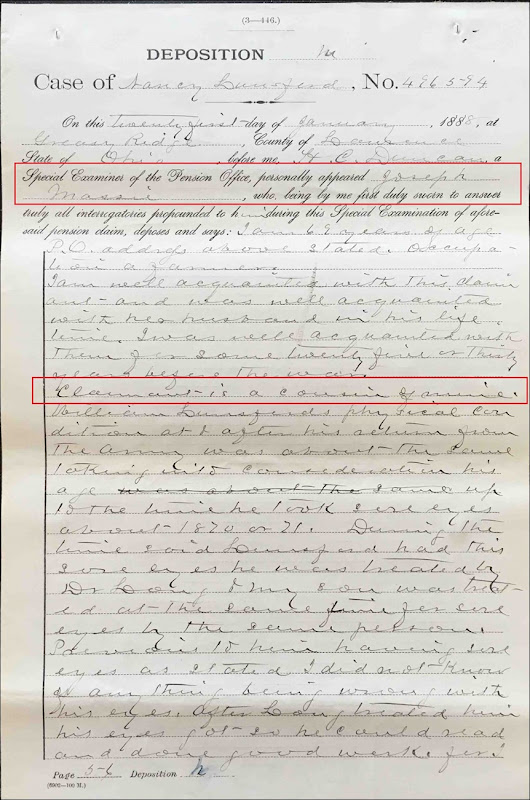 (3—446.)
DEPOSITION M
Case of Nancy Lunsford, No. 496594
On this twenty first day of January 1888, at
Greasy Ridge, County of Lawrence
State of Ohio, before me, H. C. Duncan, a
Special Examiner of the Pension Office, personally appeared Joseph
Massie, who, being by me first duly sworn to answer
truly all interrogatories propounded to him during this Special Examination of afore-
said pension claim, deposes and says: I am 69 years of age
P.O. address above stated. Occupa-
tion a farmer.
I am well acquainted with this claim
ant and was well acquainted
with her husband in his life
time. I was well acquainted with
them for some twenty five or thirty
years before the war.
Claimant is a cousin of mine.
William Lunsfords physical con
dition at & after his return from
the Army was about the same
taking into consideration his
age was about the same up
to the time he took sore eyes
about 1870 or 71. During the
time said Lunsford had this
sore eyes he was treated by
Dr Long & my son was treat-
ed at the same time for sore
eyes by the same person.
Previous to him having sore
eyes as stated I did not know
of any thing being wrong with
his eyes. After Long treated him
his eyes got so he could read
and done good work for
Page 56 Deposition
(6902—100 M.)